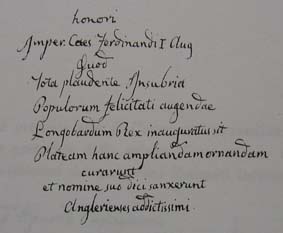 honori
Imper. Caes Ferdinandi I Aug
Quod
Tota plaudente Insubria
Populorum felicitati augendae
Longobardum Rex inauguratus sit
Plateam hanc ampliandam ornandam
curarunt
et nomine suo dici sanxerunt
Anglerienses addictissimi.